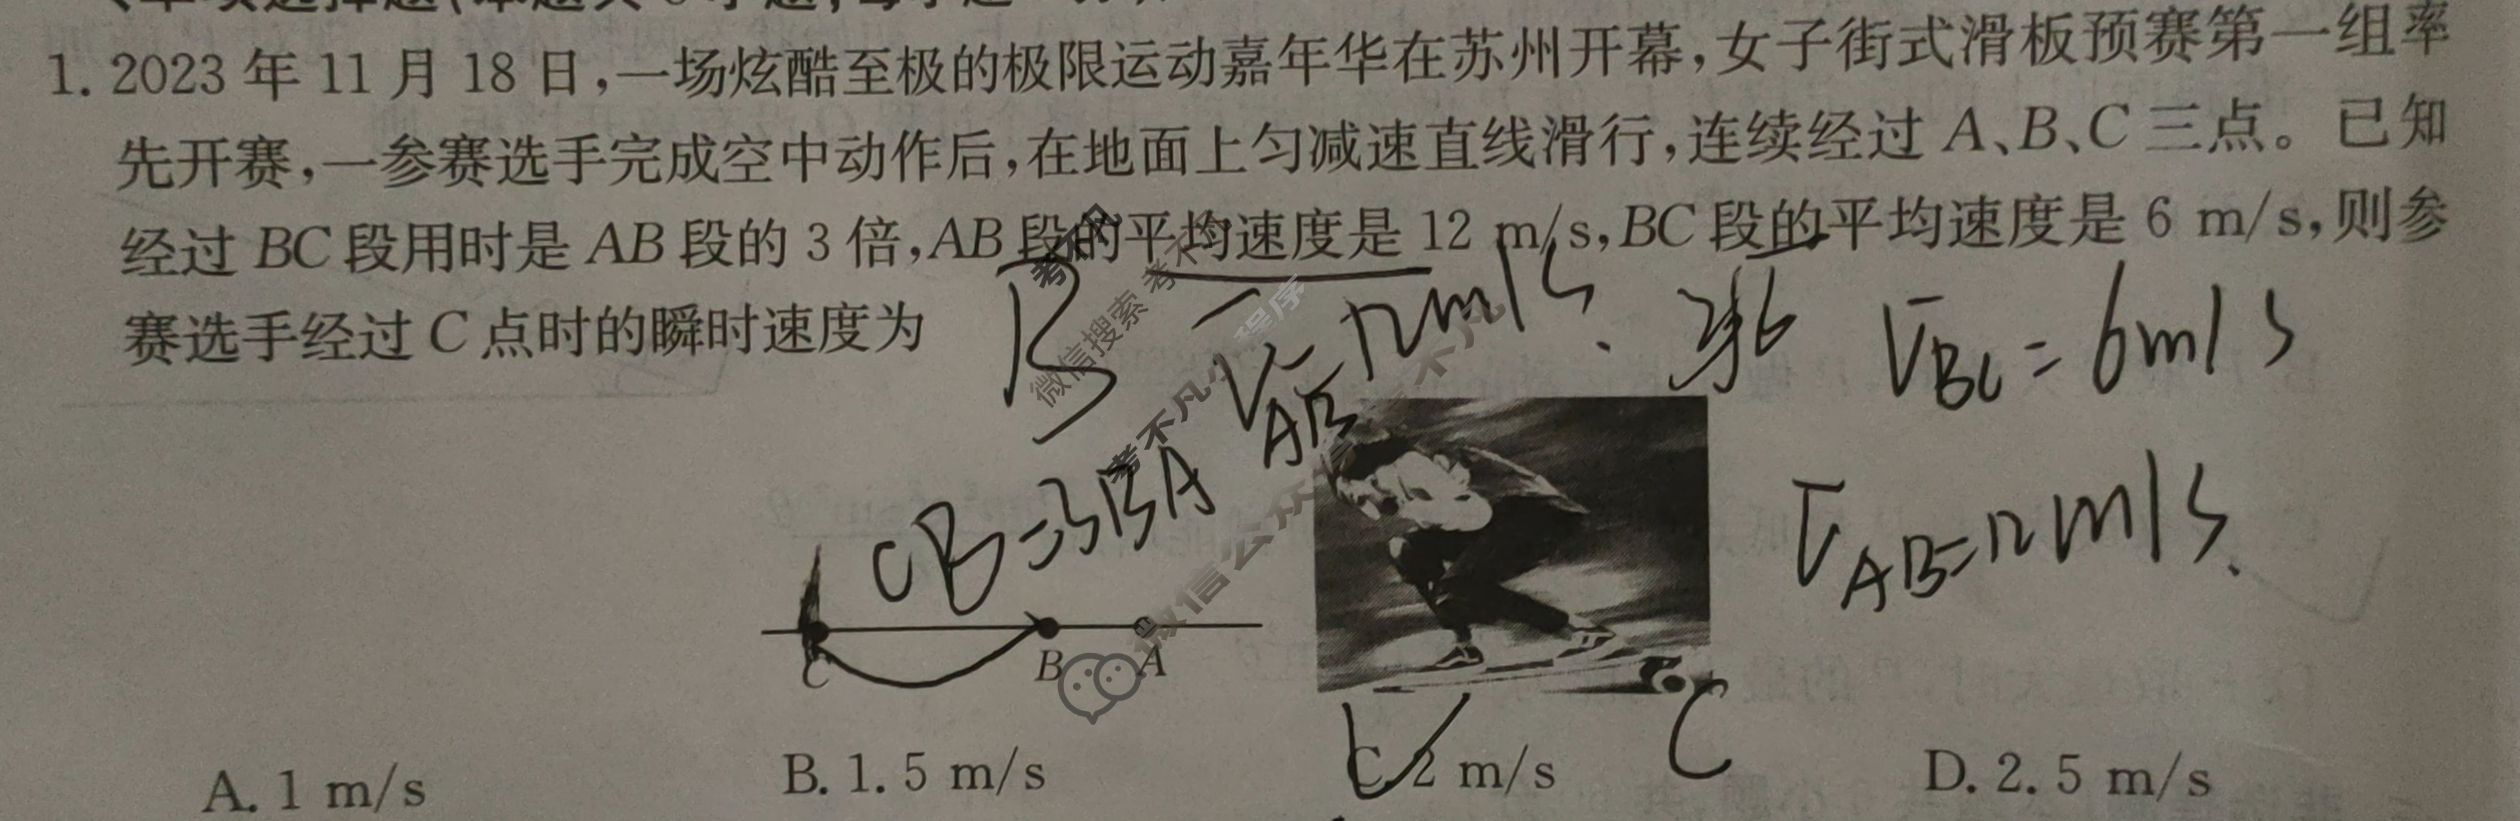 1. 2023年11月18日,一场炫酷至极的极限运动嘉年华在苏州开幕,女子街式滑板预赛第一组率
先开赛,一参赛选手完成空中动作后,在地面上匀减速直线滑行,连续经过A、B、C三点。已知
经过BC段用时是AB段的3倍,AB段的平均速度是12 m/s,BC段的平均速度是6 m/s,则参
赛选手经过C点时的瞬时速度为
B
V̄AB=12m/s.
V̄BC=6m/s
CB=3BA
V̄AB=12m/s.
C B A
C
A. 1 m/s B. 1.5 m/s C. 2 m/s D. 2.5 m/s
考不凡
微信搜索 考不凡
考不凡小程序
微信公众号 考不凡